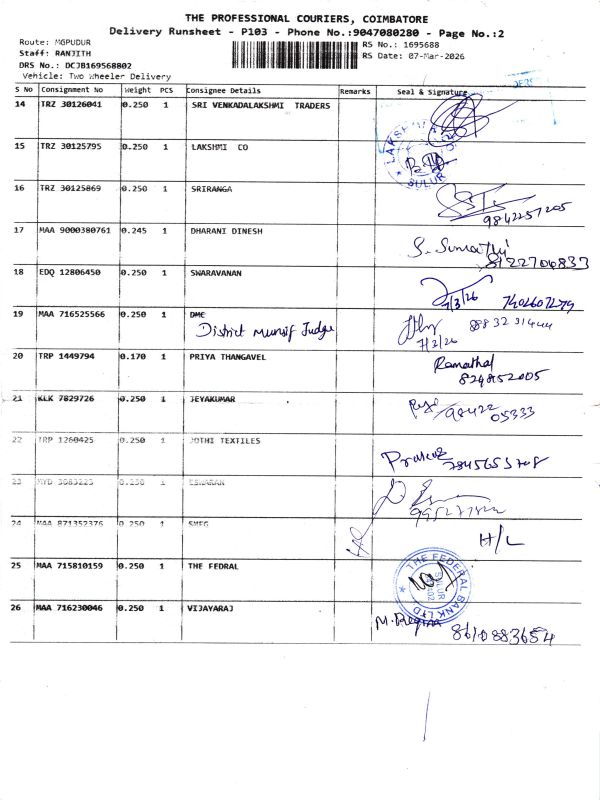 THE PROFESSIONAL COURIERS, COIMBATORE
Delivery Runsheet - P103 - Phone No.:9047080280 - Page No.:2
Route: MGPUDUR
RS No.: 1695688
Staff: RANJITH
RS Date: 07-Mar-2026
DRS No.: DCJB169568802
Vehicle: Two Wheeler Delivery
S No Consignment No Weight PCS Consignee Details Remarks Seal & Signature
14 TRZ 30126041 0.250 1 SRI VENKADALAKSHMI TRADERS
15 TRZ 30125795 0.250 1 LAKSHMI CO
SULUR
16 TRZ 30125869 0.250 1 SRIRANGA
9842257205
17 MAA 9000380761 0.245 1 DHARANI DINESH
S. Sumathi
8122704833
18 EDQ 12806450 0.250 1 SWARAVANAN
7/3/26
19 MAA 716525566 0.250 1 DMC
District Munsif Judge
7/3/26
20 TRP 1449794 0.170 1 PRIYA THANGAVEL
Ramathal
21 KLK 7829726 0.250 1 JEYAKUMAR
98422 05333
22 TRP 1260425 0.250 1 JOTHI TEXTILES
23 MYD 3083223 0.250 1 ESWARAN
24 MAA 871352376 0.250 1 SMFG
H/L
25 MAA 715810159 0.250 1 THE FEDRAL
THE FEDERAL BANK LTD
SULUR
26 MAA 716230046 0.250 1 VIJAYARAJ
8610883654